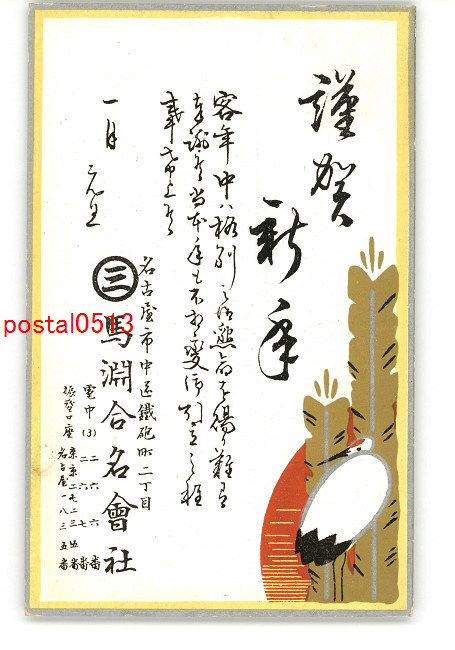 謹賀
新年
客年中ハ格別之御懇命を賜り難有
奉謝候尚本年も不相変御引立之程
奉希上候
一月 元旦
名古屋市中区鐵砲町二丁目
三 馬淵合名會社
電中(3)二六六番
二六七番
振替口座 東京二七二三五番
名古屋一八三五番
postal0513